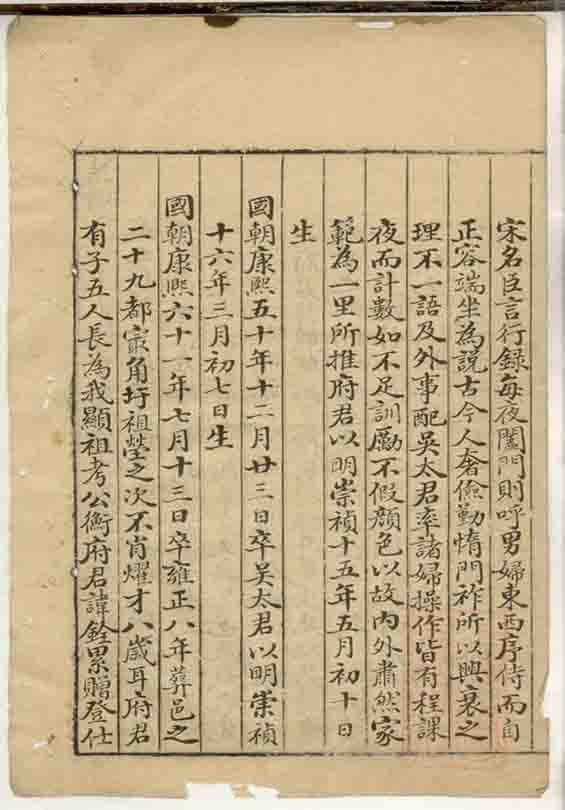 宋名臣言行録每夜闔門則呼男婦東西序侍而自
正容端坐為説古今人奢儉勤惰門祚所以興衰之
理不一語及外事配吳太君率諸婦操作皆有程課
夜而計數如不足訓勵不假顏色以故内外肅然家
範為一里所推府君以明崇禎十五年五月初十日
生
國朝康熙五十年十二月廿三日卒吳太君以明崇禎
十六年三月初七日生
國朝康熙六十一年七月十三日卒雍正八年葬邑之
二十九都㝡角圩祖塋之次不肖燿才八歲耳府君
有子五人長為我顯祖考公衡府君諱銓累贈登仕